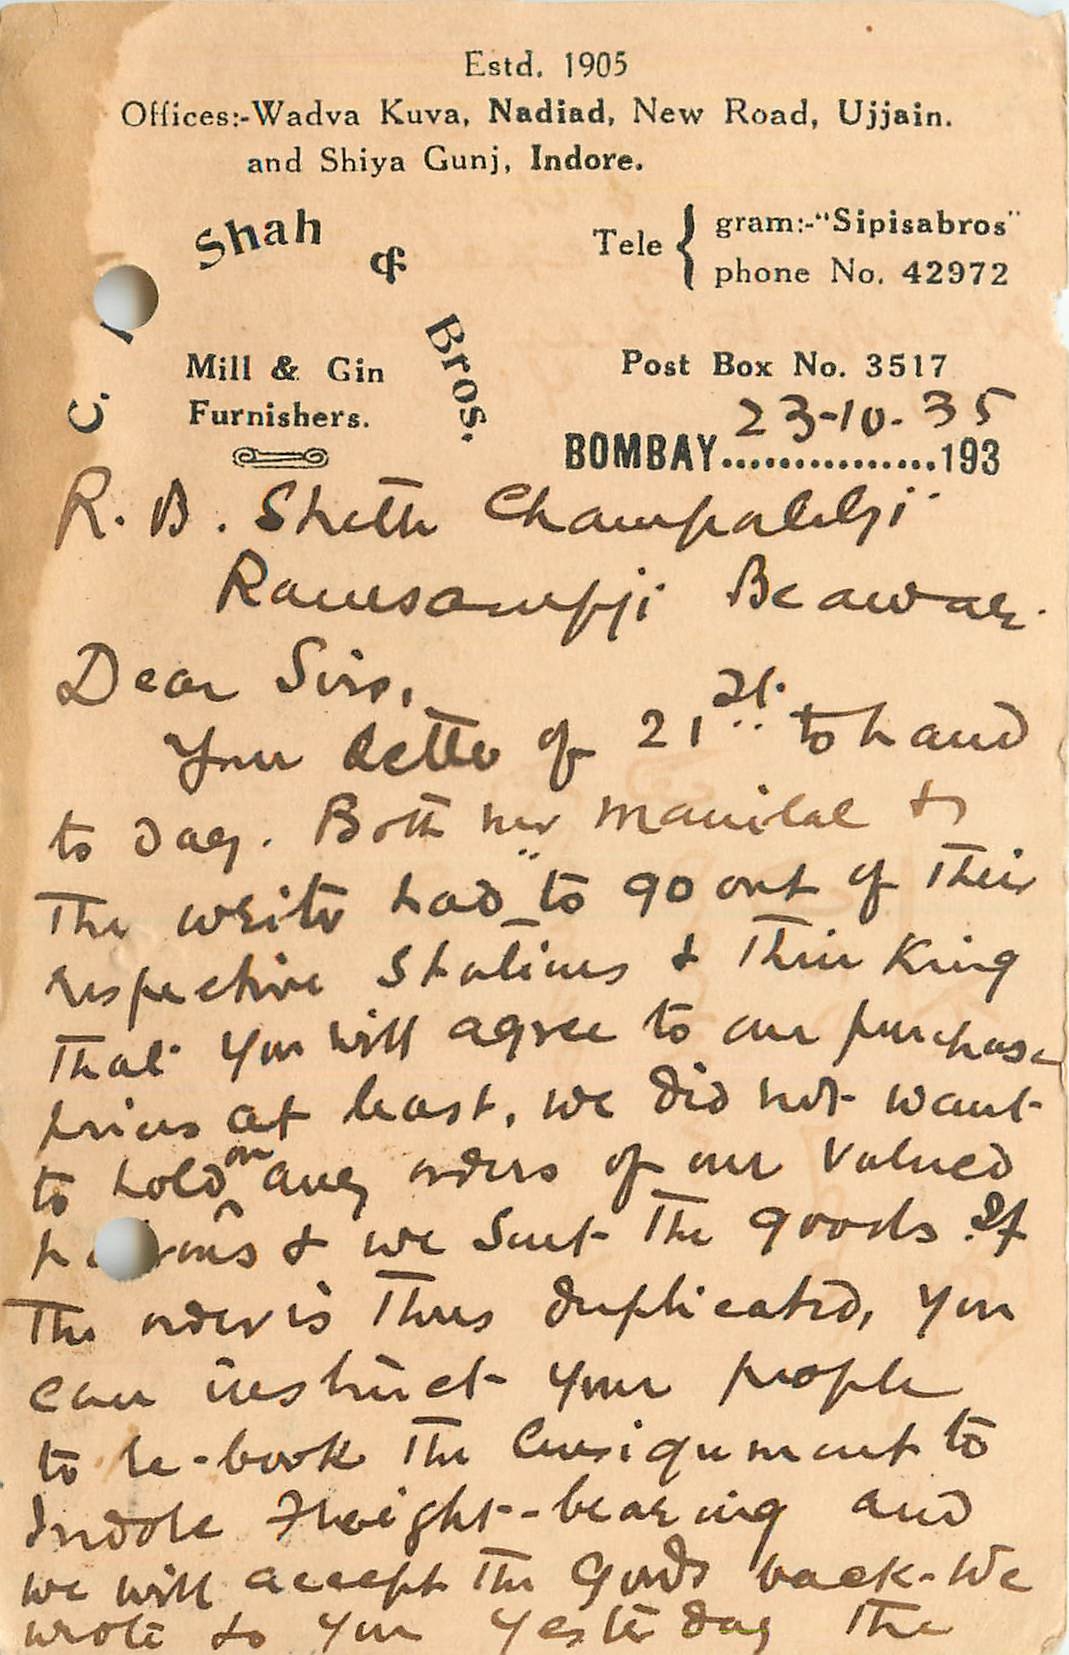 Estd. 1905
Offices:-Wadva Kuva, Nadiad, New Road, Ujjain.
and Shiya Gunj, Indore.
C. Shah & Bros.
Tele { gram:-"Sipisabros"
phone No. 42972
Mill & Gin
Furnishers.
Post Box No. 3517
23-10-35
BOMBAY................193
R. B. Sheth Champalalji
Ramsarupji Beawar.
Dear Sirs,
Your letter of 21st. to hand
to day. Both Manilal &
The writer had to go out of Their
respective Stations & Thinking
That you will agree to our purchase
prices at least, we did not want
to hold on any orders of our valued
& we sent The goods. If
The order is Thus duplicated, you
can instruct your people
to re-book The Consignment to
Indore Freight-bearing and
we will accept The Goods back. We
wrote to you yesterday The